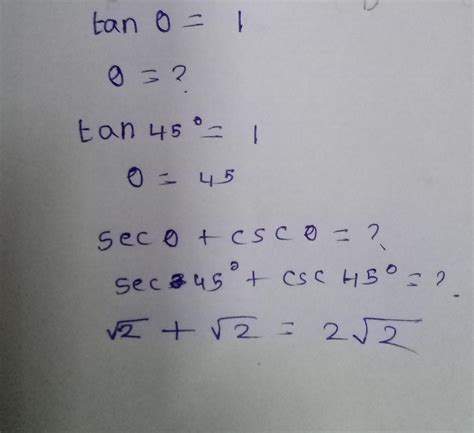 tan θ = 1
θ = ?
tan 45° = 1
θ = 45
sec θ + csc θ = ?
sec 45° + csc 45° = ?
√2 + √2 = 2√2